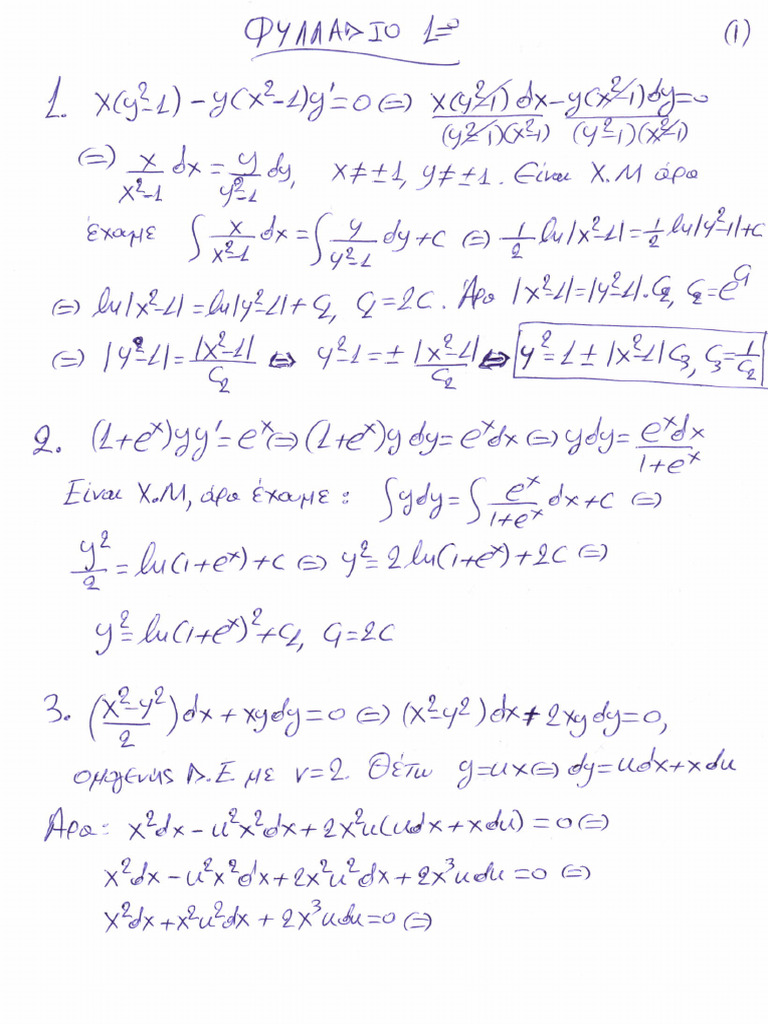 ΦΥΛΛΑΔΙΟ 1º (1)
1. x(y²-1) - y(x²-1)y' = 0 ⇔ x(y²-1)dx/(y²-1)(x²-1) - y(x²-1)dy/(y²-1)(x²-1) = 0
⇔ x/(x²-1) dx = y/(y²-1) dy, x≠±1, y≠±1. Είναι Χ.Μ άρα
έχαμε ∫ x/(x²-1) dx = ∫ y/(y²-1) dy + c ⇔ 1/2 ln|x²-1| = 1/2 ln|y²-1| + c
⇔ ln|x²-1| = ln|y²-1| + c₁, c₁=2c. Άρα |x²-1| = |y²-1|·c₂, c₂=e^c₁
⇔ |y²-1| = |x²-1|/c₂ ⇔ y²-1 = ± |x²-1|/c₂ ⇔ y² = 1 ± |x²-1|c₃, c₃ = 1/c₂
2. (1+eˣ)yy' = eˣ ⇔ (1+eˣ)y dy = eˣdx ⇔ y dy = eˣdx/(1+eˣ)
Είναι Χ.Μ, άρα έχαμε: ∫ y dy = ∫ eˣ/(1+eˣ) dx + c ⇔
y²/2 = ln(1+eˣ) + c ⇔ y² = 2 ln(1+eˣ) + 2c ⇔
y² = ln(1+eˣ)² + c₁, c₁ = 2c
3. ((x²-y²)/2)dx + xydy = 0 ⇔ (x²-y²)dx + 2xydy = 0,
ομγενής Δ.Ε με ν=2. Θέτω y=ux ⇔ dy=udx+xdu
Άρα: x²dx - u²x²dx + 2x²u(udx+xdu) = 0 ⇔
x²dx - u²x²dx + 2x²u²dx + 2x³udu = 0 ⇔
x²dx + x²u²dx + 2x³udu = 0 ⇔